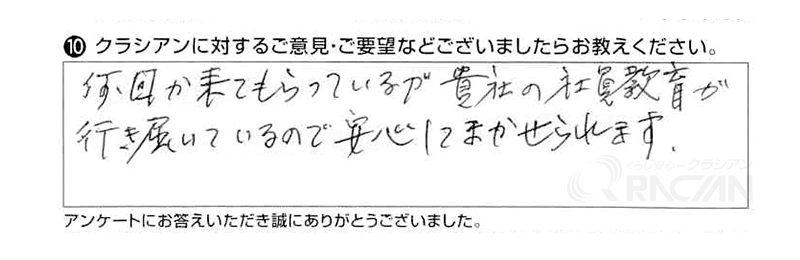 ❿ クラシアンに対するご意見・ご要望などございましたらお教えください。
何回か来てもらっているが貴社の社員教育が
行き届いているので安心してまかせられます。
くらし安心クラシアン
QRACIAN
アンケートにお答えいただき誠にありがとうございました。